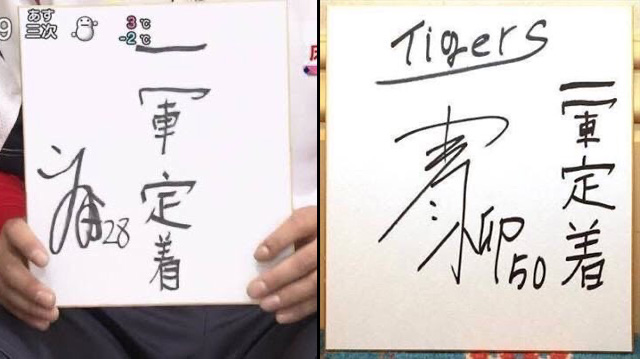 9
あす
三次
3℃
-2℃
一軍定着
28
Tigers
一軍定着
青柳
50